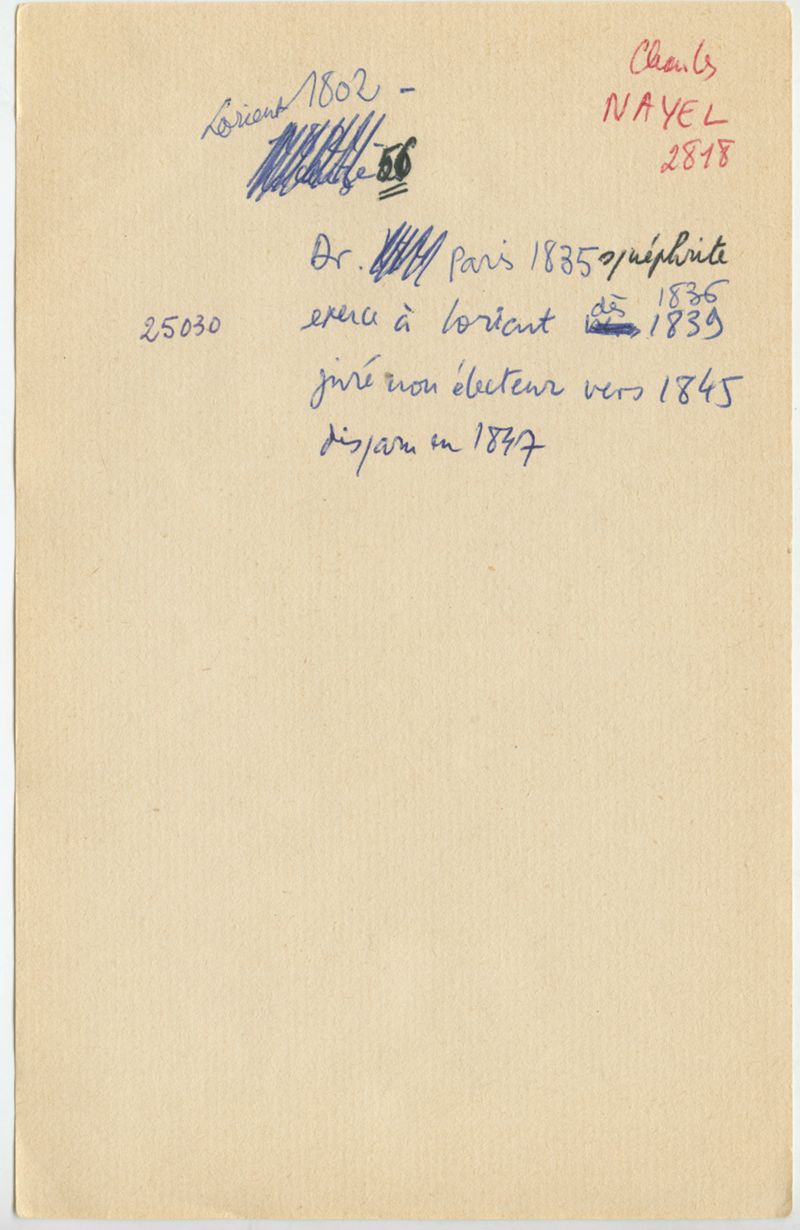 Charles
NAYEL
2818
Lorient 1802 -
56
Dr. Paris 1835 s/néphrite
1836
exerce à Lorient dès 1839
25030
juré non électeur vers 1845
disparu en 1847